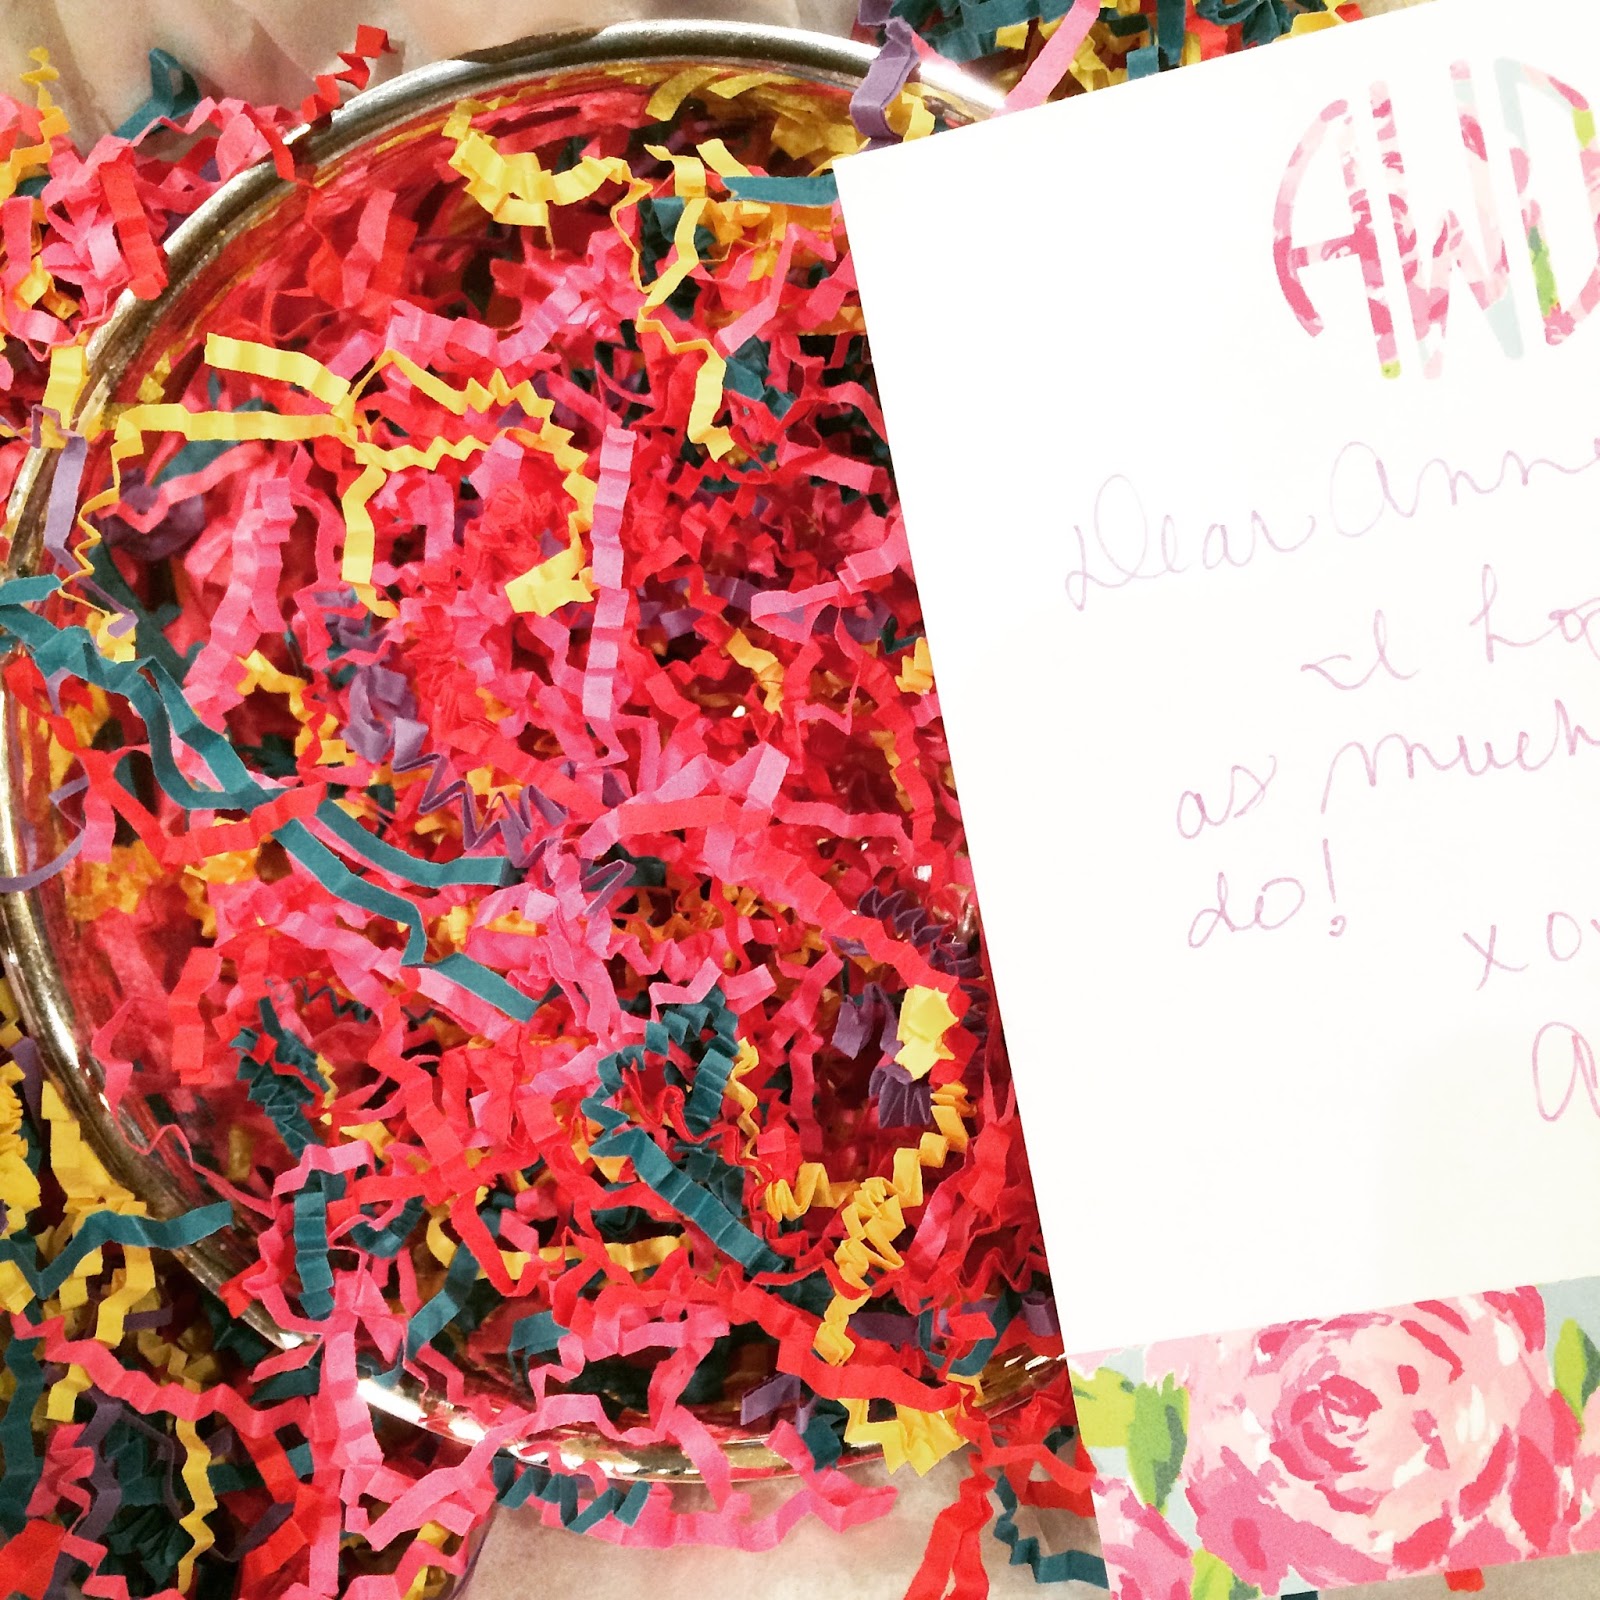 AWD
Dear Anne
I hop
as much
do!
xo